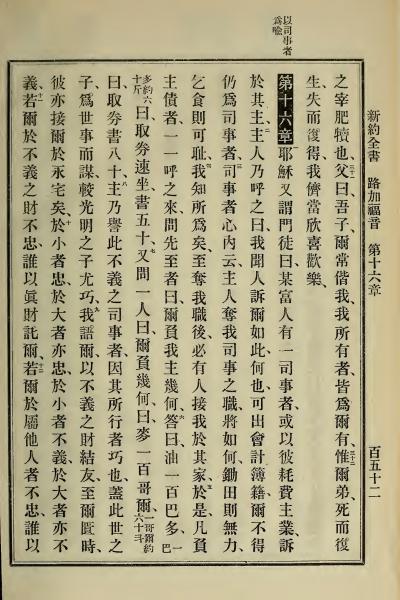 以司事者
為喻
新約全書 路加福音 第十六章
百五十二
之宰肥犢也父曰吾子爾常偕我我所有者皆爲爾有惟爾弟死而復
生失而復得我儕當欣喜歡樂
第十六章 耶穌又謂門徒曰某富人有一司事者或以彼耗費主業訴
於其主主人乃呼之曰我聞人訴爾如此何也可出會計簿籍爾不得
仍爲司事者司事者心內云主人奪我司事之職將如何鋤田則無力
乞食則可恥我知所爲矣至奪我職後必有人接我於其家於是凡負
主債者一一呼之來問先至者曰爾負我主幾何答曰油一百巴多一巴
多約六十斤曰取券速坐書五十又問一人曰爾負幾何曰麥一百哥爾一哥爾約六十斗
曰取券書八十主乃譽此不義之司事者因其所行者巧也蓋此世之
子爲世事而謀較光明之子尤巧我語爾以不義之財結友至爾匱時
彼亦接爾於永宅矣於小者忠於大者亦忠於小者不義於大者亦不
義若爾於不義之財不忠誰以眞財託爾若爾於屬他人者不忠誰以